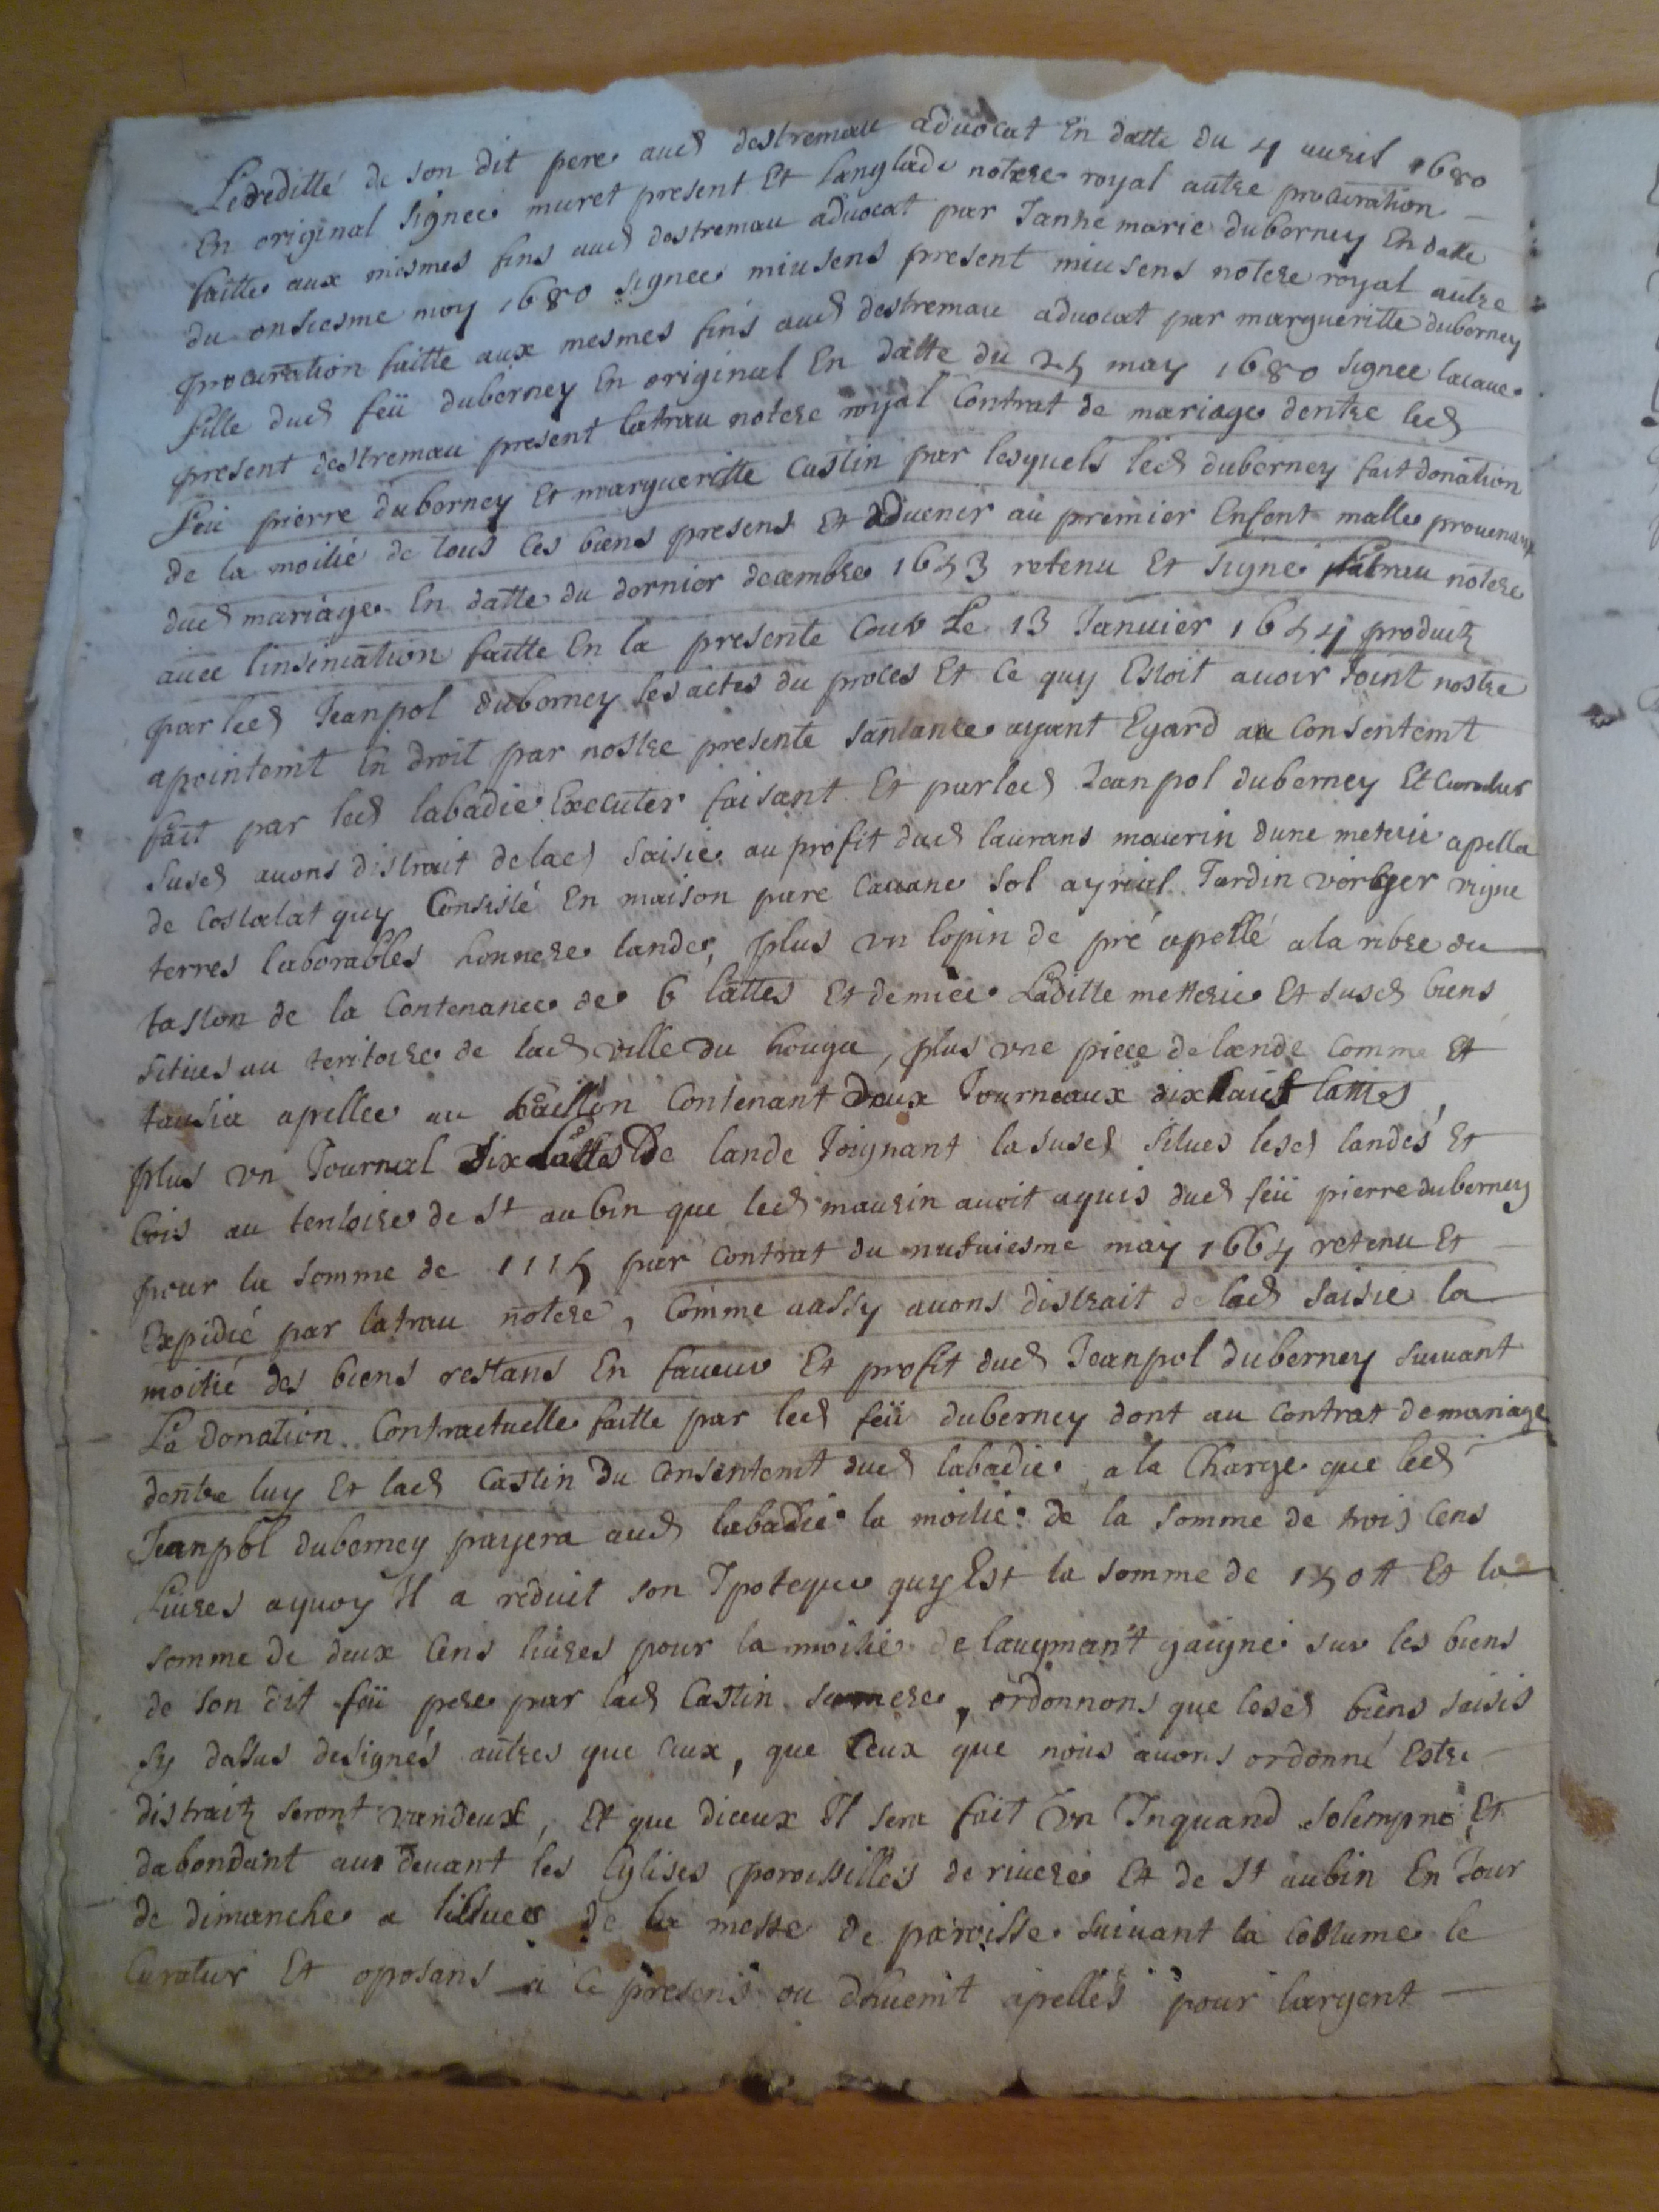 Lereditté de son dit pere aud destremau advocat En datte du 4 avril 1680
En original signee muret present Et langlade notere royal autre procuration
faitte aux mesmes fins aud destremau advocat par Janne marie duberney En datte
du onsiesme may 1680 signee miusens present miusens notere royal autre
procuration faitte aux mesmes fins aud destremau advocat par margueritte duberney
fille dud feü duberney En original En datte du 25 may 1680 signee lacaue
present destremau present latrau notere royal Contrat de mariage dentre led
feü pierre duberney Et margueritte Castin par lesquels led duberney fait donation
de la moitié de tous ces biens presens Et aduenir au premier Enfent malle prouenant
dud mariage En datte du dernier decembre 1643 retenu Et signé latrau notere
auec linsinuation faitte En la presente Cour Le 13 Januier 1644 produit
par led Jeanpol duberney les actes du proces Et Ce quy Estoit auoir Joint nostre
apointemt En droit par nostre presente santance ayant Egard au Consentemt
fait par led labadie Executer faisant Et par led Jeanpol duberney Et Curatur
susd auons distrait de lad saisie au profit dud laurans maurin dune meterie apella
de Costalat quy Consiste En maison parc Cauane sol ayrial Jardin verger vigne
terres laborables honnere lande, plus vn lopin de pré apellé a la ribere du
taston de la Contenance de 6 lattes Et demiee Laditte metterie Et susd biens
situes au teritoire de lad ville du houga, plus vne piece de lande Comme Et
tausia apellee au Contenant deux Journeaux dixhuit lattes
plus vn Journal dix lattes De lande Joignant la susd situes lesd landes Et
bois au teritoire de St aubin que led maurin auoit aquis dud feü pierre duberney
pour la somme de par Contrat du may 1664 retenu Et
Expidié par latrau notere, Comme aussy auons distrait de lad saisie la
moitié des biens restans En faueur Et profit dud Jeanpol duberney suiuant
La donation Contractuelle faitte par led feü duberney dont au Contrat de mariage
dentre luy Et lad Castin Du Consentemt dud labadie, a la Charge que led
Jeanpol duberney payera aud labadie la moitié de la somme de trois Cens
Liures aquoy Il a reduit son Ipoteque quy Est la somme de 150 tt Et la
somme de deux Cens liures pour la moitié de laugmant gaigné sur les biens
de son dit feü pere par lad Castin samere, ordonnons que lesd biens saisis
sy dassus designés autres que Ceux, que Ceux que nous auons ordonné Estre
distraitz seront vandeux, Et que diceux Il sera fait Vn Inquand solempne Et
dabondant au deuant les Eglises paroissilles de riuere Et de St aubin En Jour
de dimanche a lissuee de la messe de paroisse suiuant la Costume le
Curatur Et oposans a Ce presens ou duuemt apellés pour largent